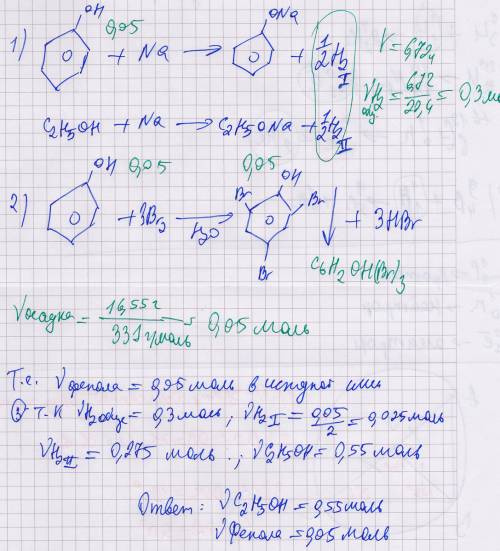 1) OH 0,05 + Na → ONa + 1/2 H2 I V = 6,72л
νH2 общ = 6,72/22,4 = 0,3 мо
C2H5OH + Na → C2H5ONa + 1/2 H2 II
2) OH 0,05 + 3Br2 → H2O 0,05 OH Br Br Br ↓ + 3HBr
C6H2OH(Br)3
νосадка = 16,55г / 331г/моль = 0,05 моль
Т.е. νфенола = 0,05 моль в исходной смеси
3) т-к νH2общ = 0,3 моль; νH2 I = 0,05/2 = 0,025 моль
νH2 II = 0,275 моль; νC2H5OH = 0,55 моль
Ответ: νC2H5OH = 0,55 моль
νФенола = 0,05 моль